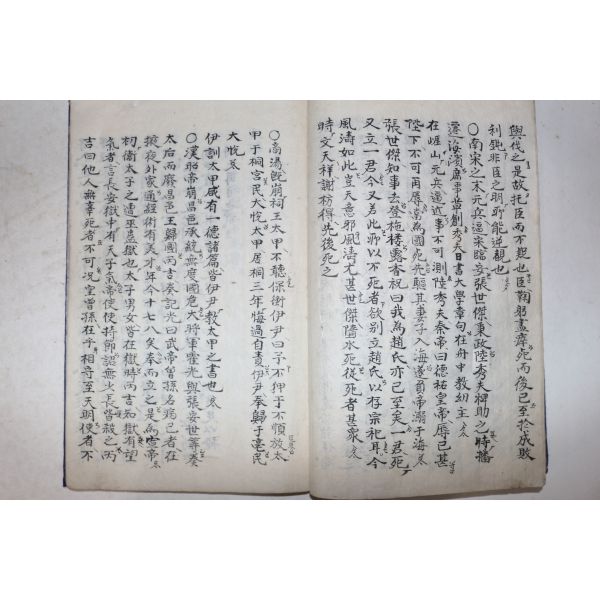 與伐之是故托臣而不疑也臣鞠躬盡瘁死而後已至於成敗
利鈍非臣之明所能逆覩也
○南宋之末元兵逼宋臨安張世傑秉政陸秀夫裨助之時播
遷海濱庶事草創秀夫日書大學章句在舟中教幼主
在崖山元兵逼近事不可測陸秀夫奏帝曰德祐皇帝辱已甚
陛下不可再辱當為國死先驅其妻子入海遂負帝溺于海
張世傑知事去登柁樓露香祝曰我為趙氏亦已至矣一君死
又立一君今又若此所以不死者欲別立趙氏以存宗祀耳今
風濤如此豈天意邪風濤尤甚世傑墮水死從死者甚衆
時文天祥謝枋得先後死之
○商湯旣崩祠王太甲不聽保衡伊尹曰予不狎于不順放太
甲于桐宮民大悅太甲居桐三年悔過自責伊尹奉歸于亳民
大悅
伊訓太甲咸有一德諸篇皆伊尹教太甲之書也
○漢昭帝崩昌邑承統無度國危大將軍霍光與張安世等奏
太后而廢昌邑王歸國丙吉奏記光曰武帝曾孫名病已者在
掖夜外家通經術有美才年今十七八矣奉而立之是為宣帝
初衛太子之遭巫蠱獄也太子男女皆在獄時丙吉知獄有望
氣者言長安獄中有天子氣帝使使持節詔無少長皆殺之丙
吉曰他人無辜死者不可况皇曾孫在乎相守至天明使者不